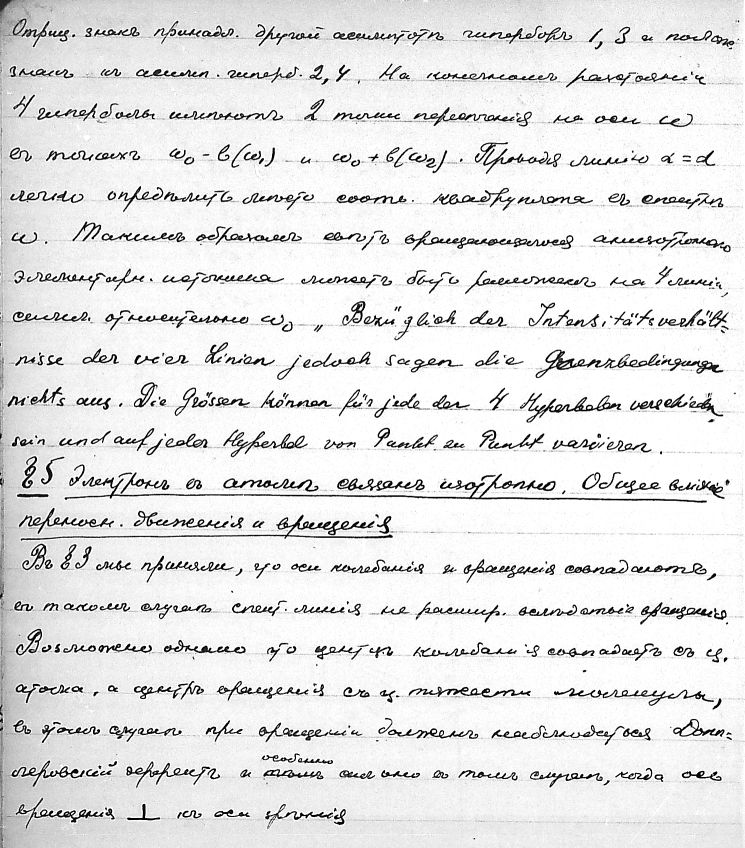 Отриц. знакъ принадл. другой асимптотѣ гиперболъ 1, 3 и полож.
знакъ къ асимп. гиперб. 2, 4. На конечномъ разстоянiи
4 гиперболы имѣютъ 2 точки пересѣченiя на оси ω
въ точкахъ ω₀ - b(ω₁) и ω₀ + b(ω₂). Проводя линiю α = α
легко опредѣлить мѣсто соотв. квадруплета въ спектрѣ
ω. Такимъ образомъ свѣтъ вращающагося анизотропнаго
элементарн. источника можетъ быть разложенъ на 4 линiи,
симм. относительно ω₀ „Bezüglich der Intensitätsverhält=
nisse der vier Linien jedoch sagen die Grenzbedingungen
nichts aus. Die Grössen können für jede der 4 Hyperbeln verschieden
sein und auf jeder Hyperbel von Punkt zu Punkt variieren.
§5 Электронъ въ атомѣ связанъ изотропно. Общее влiянiе
переносн. движенiя и вращенiя
Въ §3 мы приняли, что оси колебанiя и вращенiя совпадаютъ,
въ такомъ случаѣ спект. линiя не расшир. вслѣдствiе вращенiя.
Возможно однако что центръ колебанiя совпадаетъ съ ц.
атома, а центръ вращенiя съ ц. тяжести молекулы,
въ этомъ случаѣ при вращенiи долженъ наблюдаться Допп=
леровскiй эффектъ и особенно сильно въ томъ случаѣ, когда ось
вращенiя ⊥ къ оси зрѣнiя